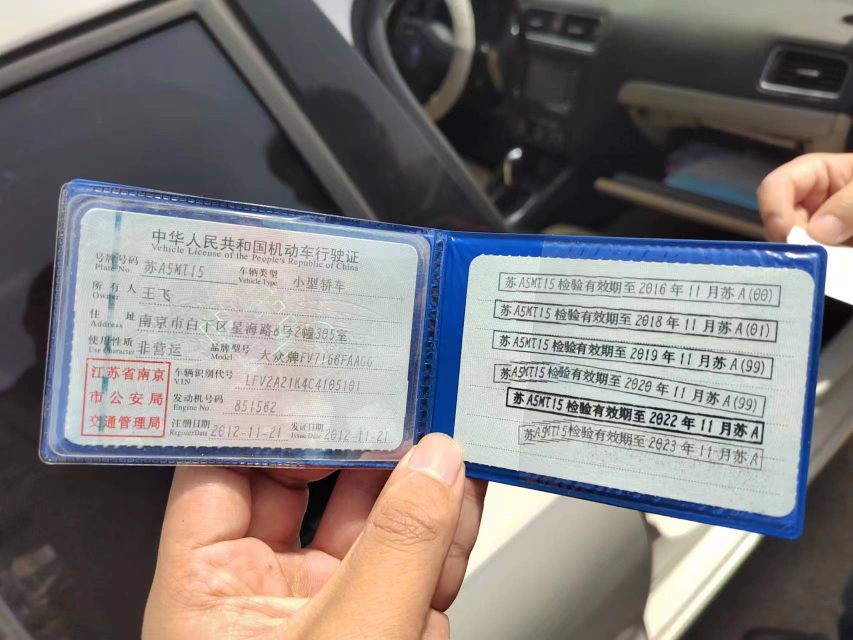 中华人民共和国机动车行驶证
Vehicle License of the People's Republic of China
号牌号码 Plate No. 苏A5MT15 车辆类型 Vehicle Type 小型轿车
所有人 Owner 王飞
住址 Address 南京市白下区星海路8号2幢305室
使用性质 Use Character 非营运 品牌型号 Model 大众牌FV7166FAAGG
江苏省南京市公安局交通管理局
车辆识别代号 VIN LFV2A21K4C4105101
发动机号码 Engine No. 851562
注册日期 Register Date 2012-11-21 发证日期 Issue Date 2012-11-21
苏A5MT15 检验有效期至 2016 年 11 月苏 A(00)
苏A5MT15 检验有效期至 2018 年 11 月苏 A(01)
苏A5MT15 检验有效期至 2019 年 11 月苏 A(99)
苏A5MT15 检验有效期至 2020 年 11 月苏 A(99)
苏A5MT15 检验有效期至 2022 年 11 月苏 A
苏A5MT15 检验有效期至 2023 年 11 月苏 A